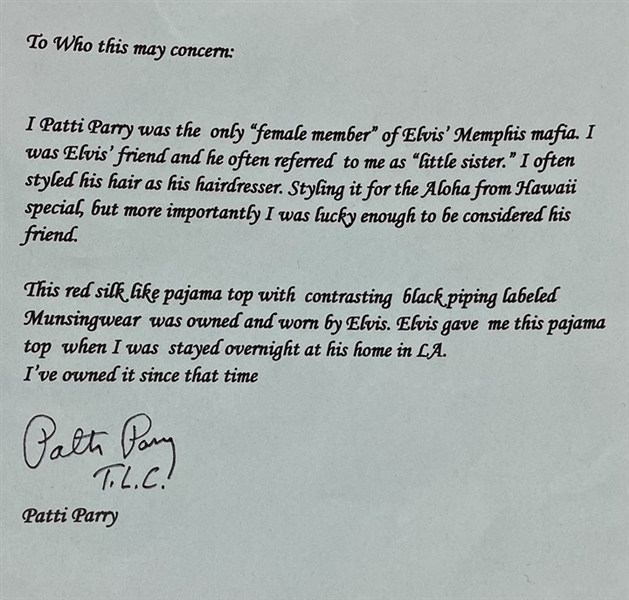 To Who this may concern:
I Patti Parry was the only "female member" of Elvis' Memphis mafia. I
was Elvis' friend and he often referred to me as "little sister." I often
styled his hair as his hairdresser. Styling it for the Aloha from Hawaii
special, but more importantly I was lucky enough to be considered his
friend.
This red silk like pajama top with contrasting black piping labeled
Munsingwear was owned and worn by Elvis. Elvis gave me this pajama
top when I was stayed overnight at his home in LA.
I've owned it since that time
Patti Parry
T.L.C.!
Patti Parry